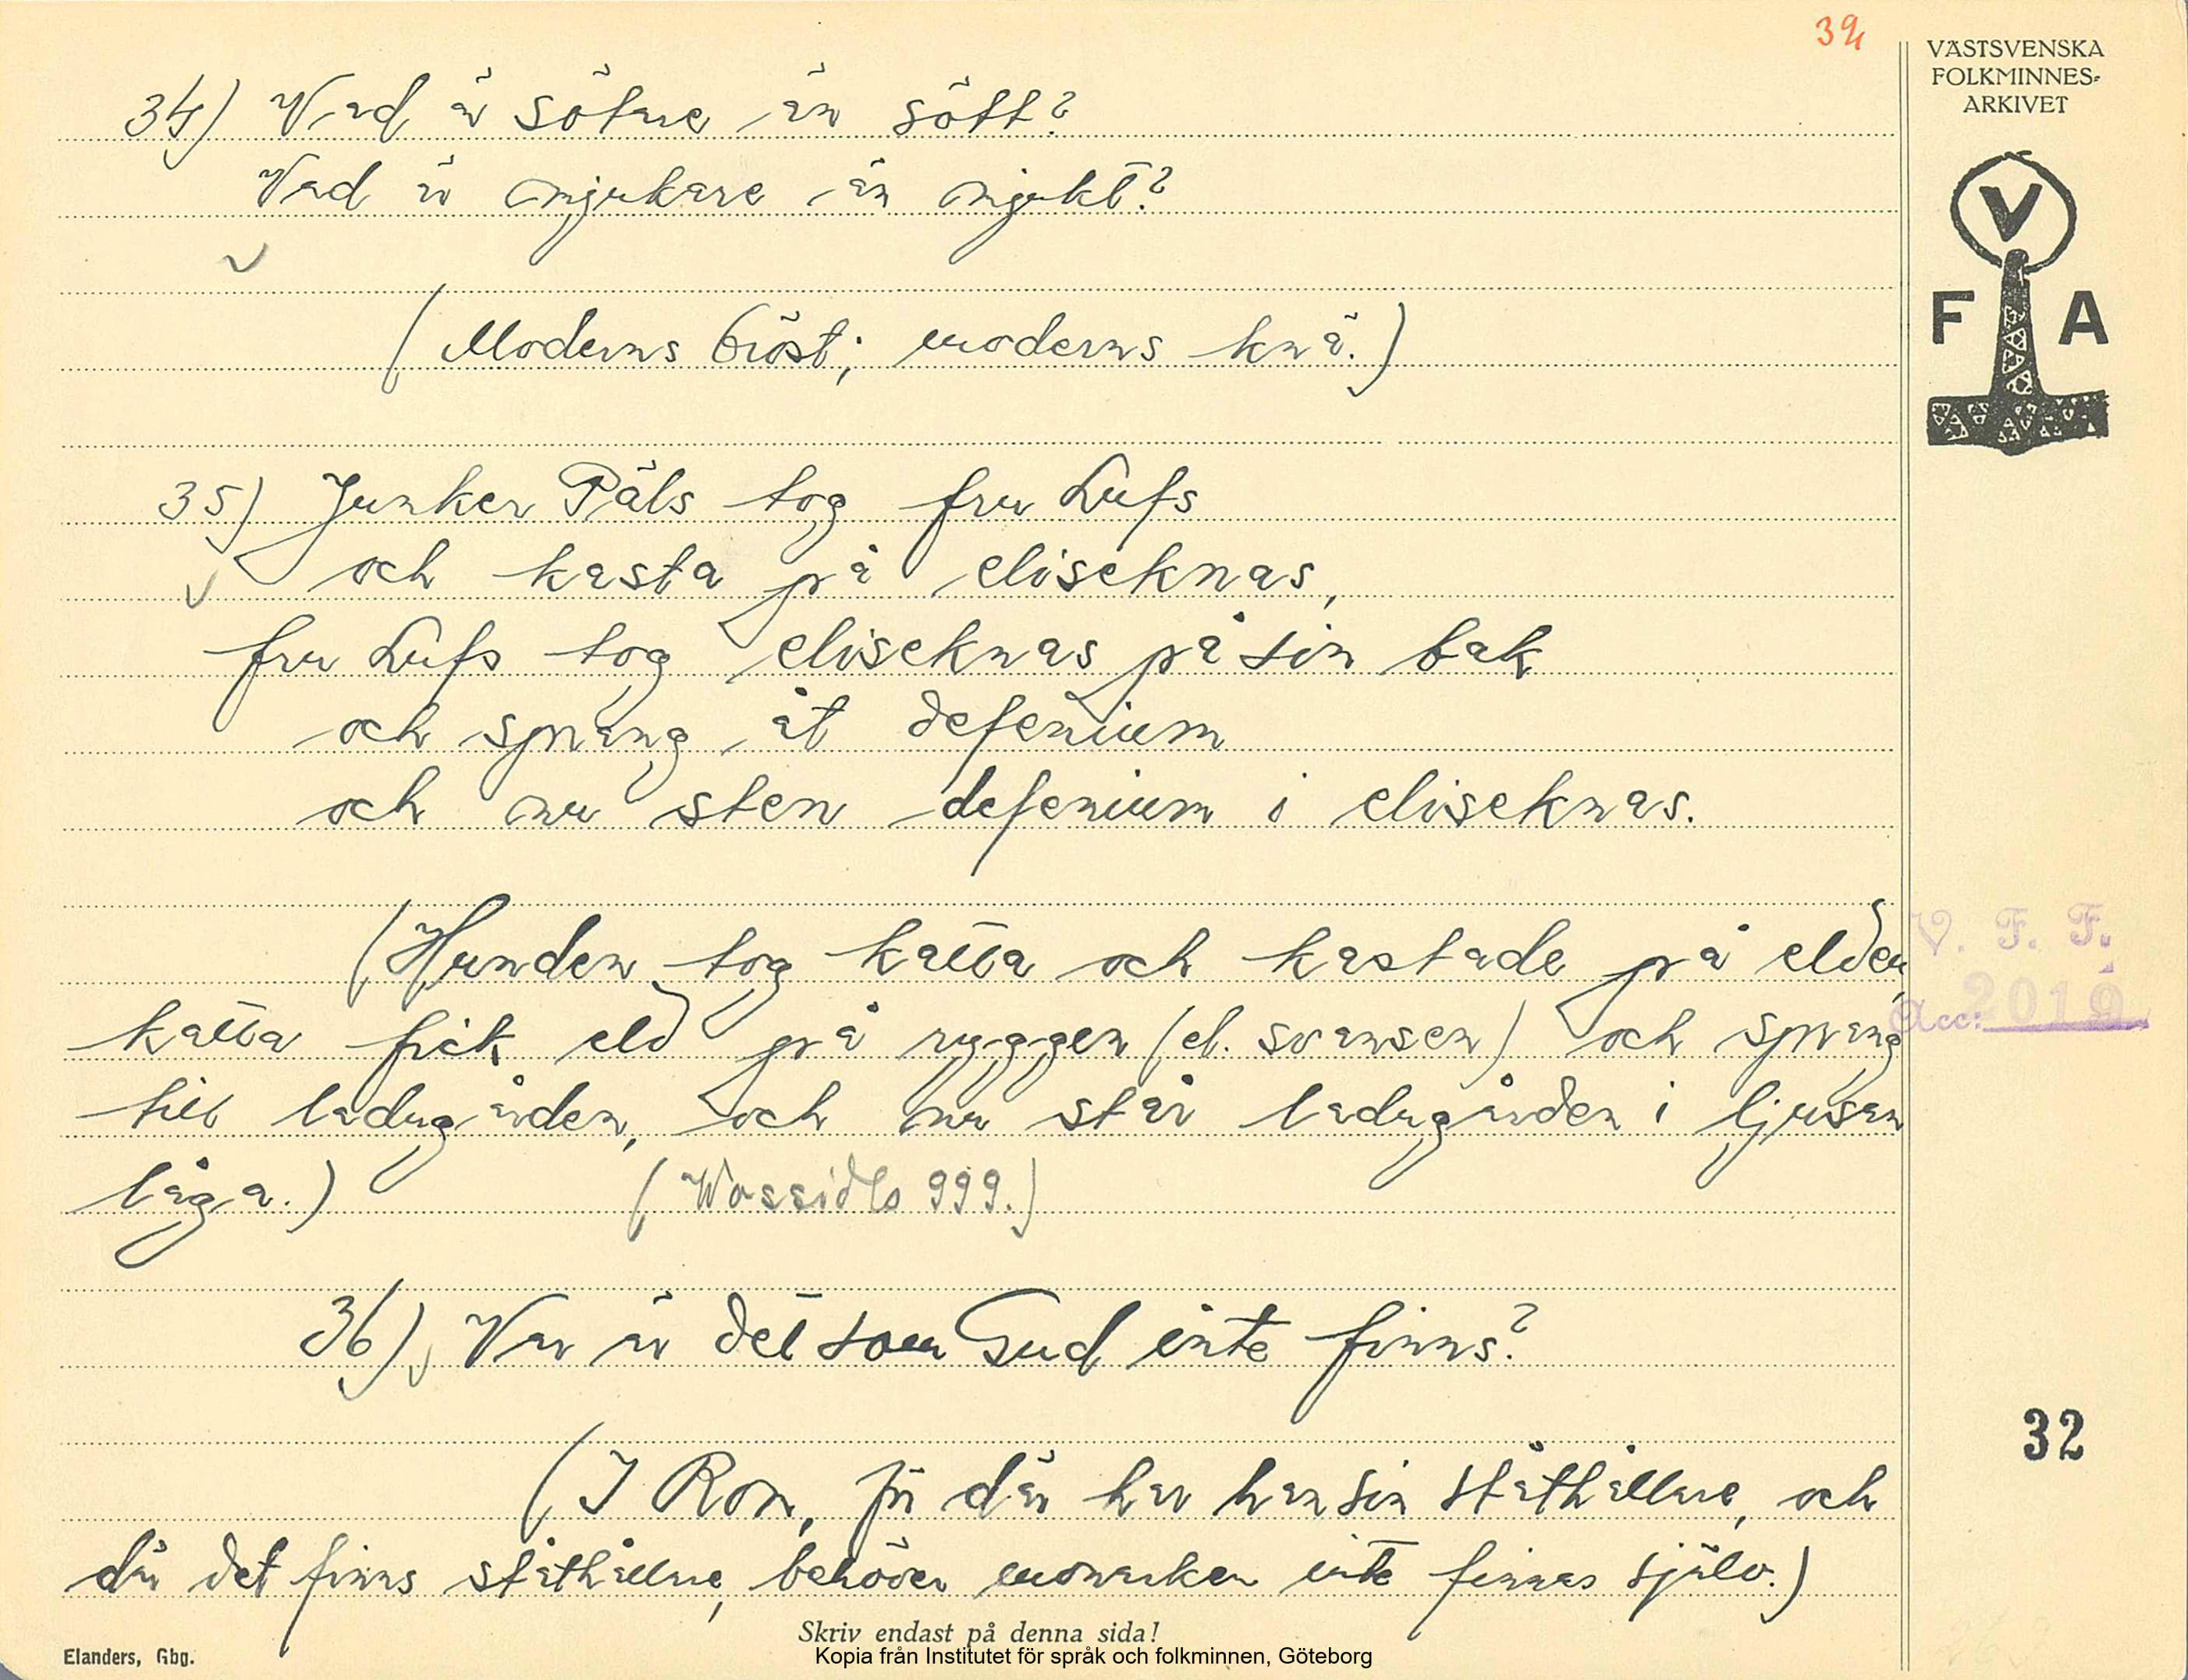 39
VÄSTSVENSKA
FOLKMINNES-
ARKIVET
V
F A
34) Vad är sötare än sött?
Vad är mjukare än mjukt?
(Moderns bröst; moderns knä.)
35) Junker Päls tog fru Lufs
och kasta på eliseknas,
fru Lufs tog eliseknas på sin bak
och sprang åt defenium
och nu sten defenium i eliseknas.
(Hunden tog katta och kastade på elden,
katta fick eld på ryggen (el. svansen) och sprang
till ladugården, och nu står ladugården i ljusan
låga.) (Wossidlo 999.)
V. F. F.
Acc: 2019
36) Var är det som Gud inte finns?
(I Rom, för där har han sin ståthållare, och
där det finns ståthållare, behöver monarken inte finnas själv.)
32
Skriv endast på denna sida!
Elanders, Gbg.
Kopia från Institutet för språk och folkminnen, Göteborg